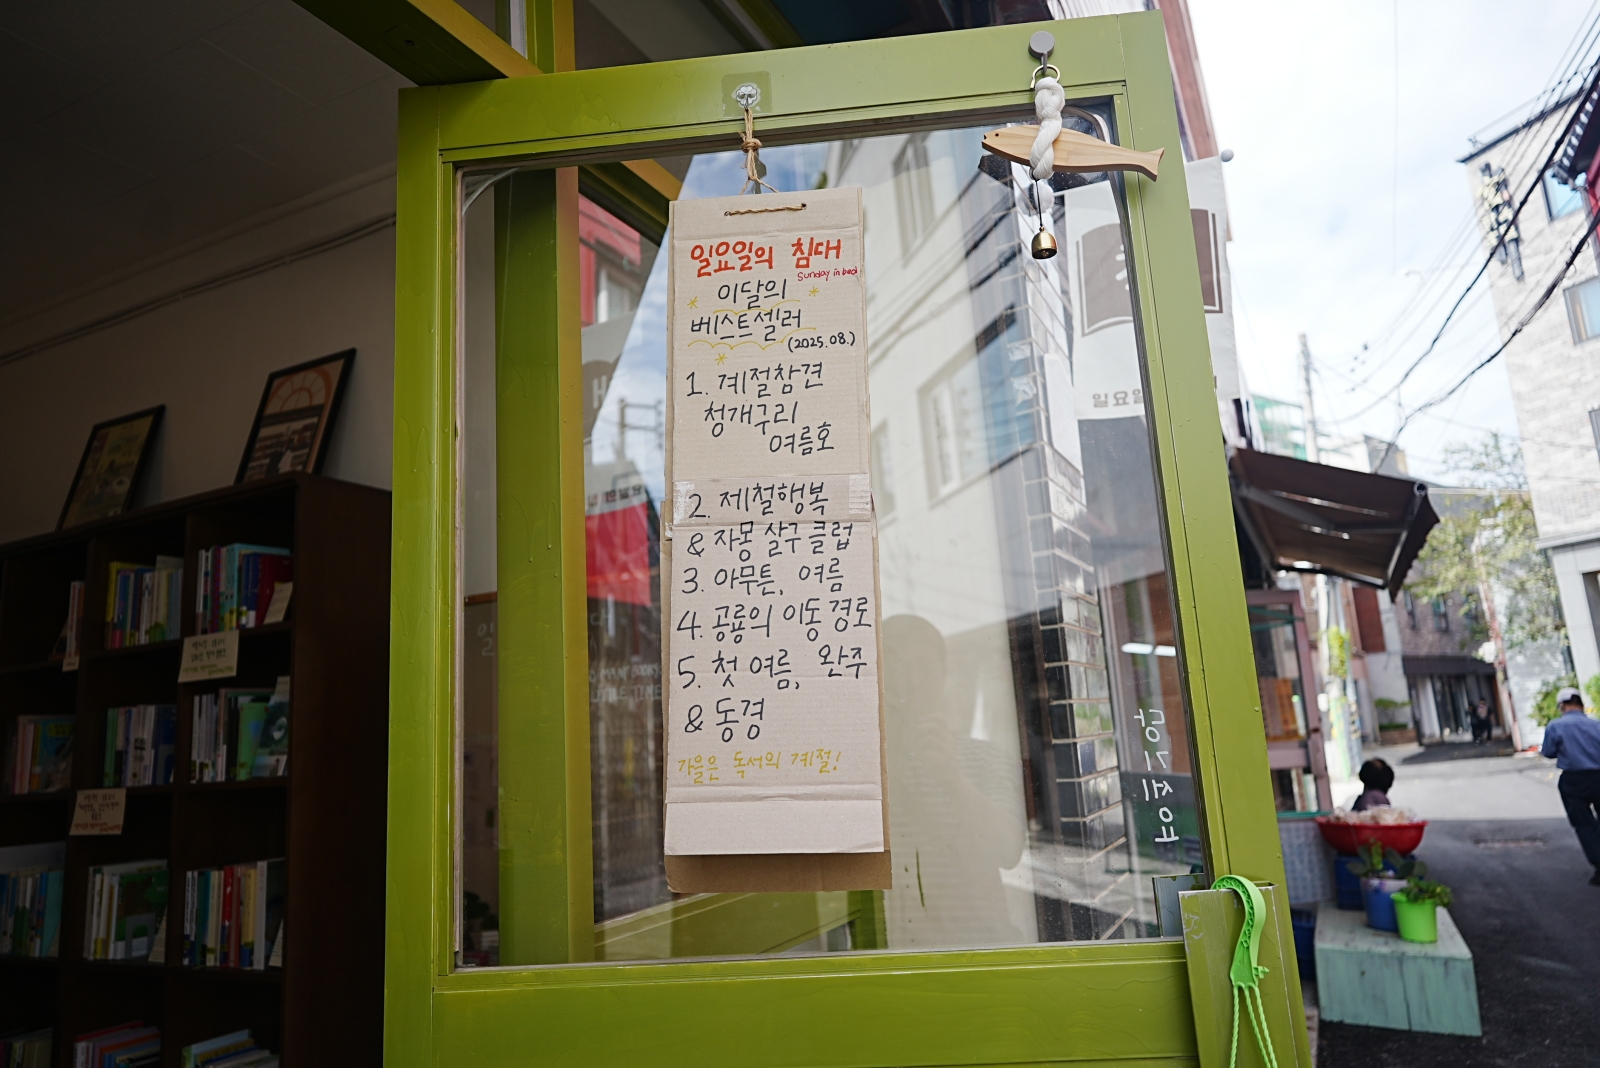 일요일의 침대
Sunday in bed
이달의
베스트셀러
(2025.08.)
1. 계절참견
청개구리
여름호
2. 제철행복
& 자몽살구클럽
3. 아무튼, 여름
4. 공룡의 이동 경로
5. 첫 여름, 완주
& 동경
가을은 독서의 계절!
일요일
당기세요